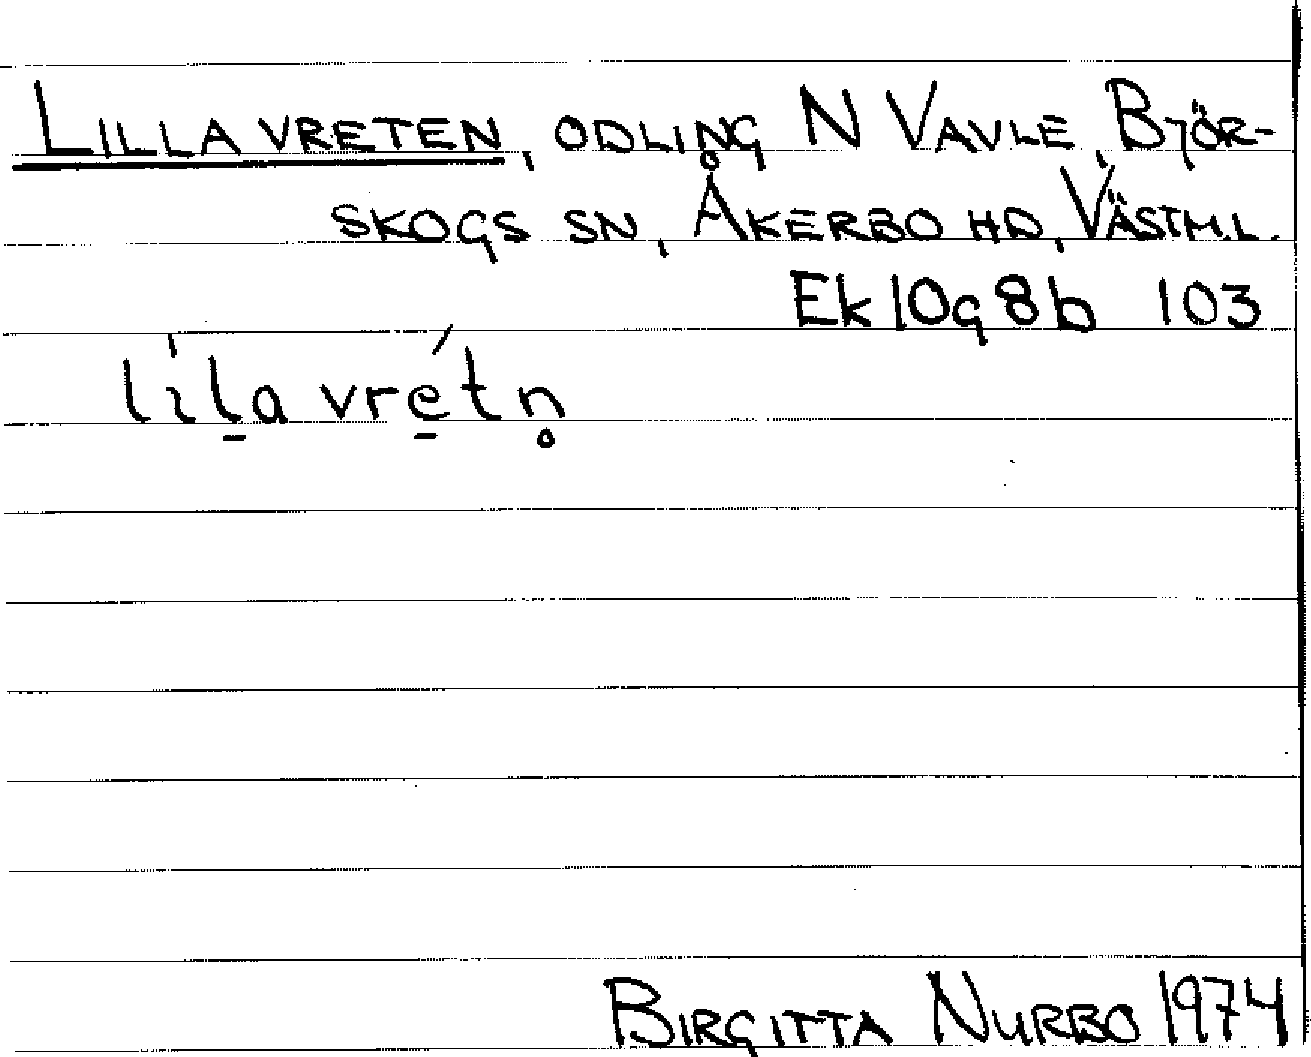 LILLA VRETEN, ODLING N VAVLE, BJÖR-
SKOGS SN, ÅKERBO HD, VÄSTM.L.
Ek 10g 8b 103
lìl̠a vré̠tn̥
BIRGITTA NURBO 1974